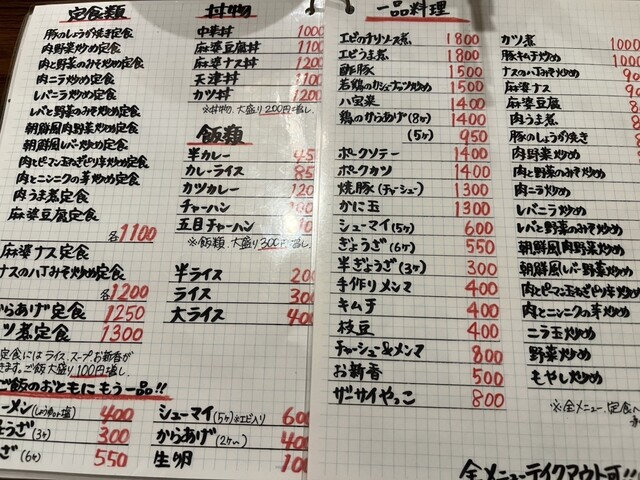 定食類
豚のしょうが焼き定食
肉野菜炒め定食
肉と野菜のみそ炒め定食
肉ニラ炒め定食
レバニラ炒め定食
レバと野菜のみそ炒め定食
朝鮮風肉野菜炒め定食
朝鮮風レバー炒め定食
肉とピーマン玉ねぎピリ辛炒め定食
肉とニンニクの芽炒め定食
肉うま煮定食
麻婆豆腐定食
各1100
麻婆ナス定食
ナスのハ丁みそ炒め定食
各1200
からあげ定食 1250
ツ煮定食 1300
定食にはライス、スープ、お新香が
きます。ご飯大盛り100円増し.
ご飯のおともにもう一品!!
ーメン(しょうゆor塩) 400
ょうざ(3ヶ) 300
ざ(6ヶ) 550
シューマイ(5ヶ)※エビ入り 600
からあげ(2ヶ〜) 400
生卵 100
丼物
中華丼 1000
麻婆豆腐丼 1100
麻婆ナス丼 1200
天津丼 1100
カツ丼 1200
※丼物、大盛り200円増し.
飯類
半カレー 45
カレーライス 85
カツカレー 120
チャーハン 100
五目チャーハン 10
※飯類、大盛り300円増し.
半ライス 200
ライス 300
大ライス 400
一品料理
エビのチリソース煮 1800
エビうま煮 1800
酢豚 1500
若鶏のカシューナッツ炒め 1500
八宝菜 1400
鶏のからあげ(8ヶ) 1400
(5ヶ) 950
ポークソテー 1400
ポークカツ 1400
焼豚(チャーシュー) 1300
かに玉 1300
シューマイ(5ヶ) 600
ぎょうざ(6ヶ) 550
半ぎょうざ(3ヶ) 300
手作りメンマ 400
キムチ 400
枝豆 400
チャーシュー&メンマ 800
お新香 500
ザーサイやっこ 800
カツ煮 1000
豚キムチ炒め 1000
ナスのハ丁みそ炒め 90
麻婆ナス 9
麻婆豆腐 8
肉うま煮
豚のしょうが焼き
肉野菜炒め
肉と野菜のみそ炒め
肉ニラ炒め
レバニラ炒め
レバと野菜のみそ炒め
朝鮮風肉野菜炒め
朝鮮風レバー野菜炒め
肉とピーマン玉ねぎピリ辛炒め
肉とニンニクの芽炒め
ニラ玉炒め
野菜炒め
もやし炒め
※全メニュー、定食
全メニューテイクアウト可!!